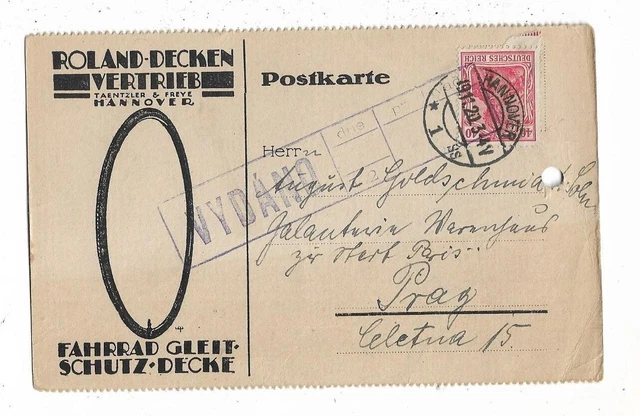 ROLAND-DECKEN
VERTRIEB
TAENTZLER & FREYE
HANNOVER
FAHRRAD GLEIT-
SCHUTZ-DECKE
Postkarte
DEUTSCHES REICH
40 40
HANNOVER
* 1
VYDÁNO
dne
Herrn
August Goldschmid & Sohn
Galanterie Warenhaus
zur Stadt Paris
Prag
Celetna 15.